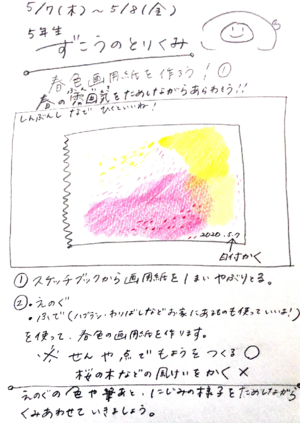 5/7(木)～5/8(金)
5年生
ずこうのとりくみ
春色画用紙を作ろう！①
春の雰囲気をためしながらあらわそう！！
しんぶんしなど ひくといいね！
2020.5.7
日付かく
① スケッチブックから画用紙を1まいやぶりとる。
②・えのぐ
・ふで(ハブラシ・わりばしなどお家にあるものも使っていいよ!)
を使って、春色の画用紙を作ります。
※ せんや点でもようをつくる ○
桜の木などの風けいをかく ×
えのぐの色や筆あと、にじみの様子をためしながら
くみあわせていきましょう。